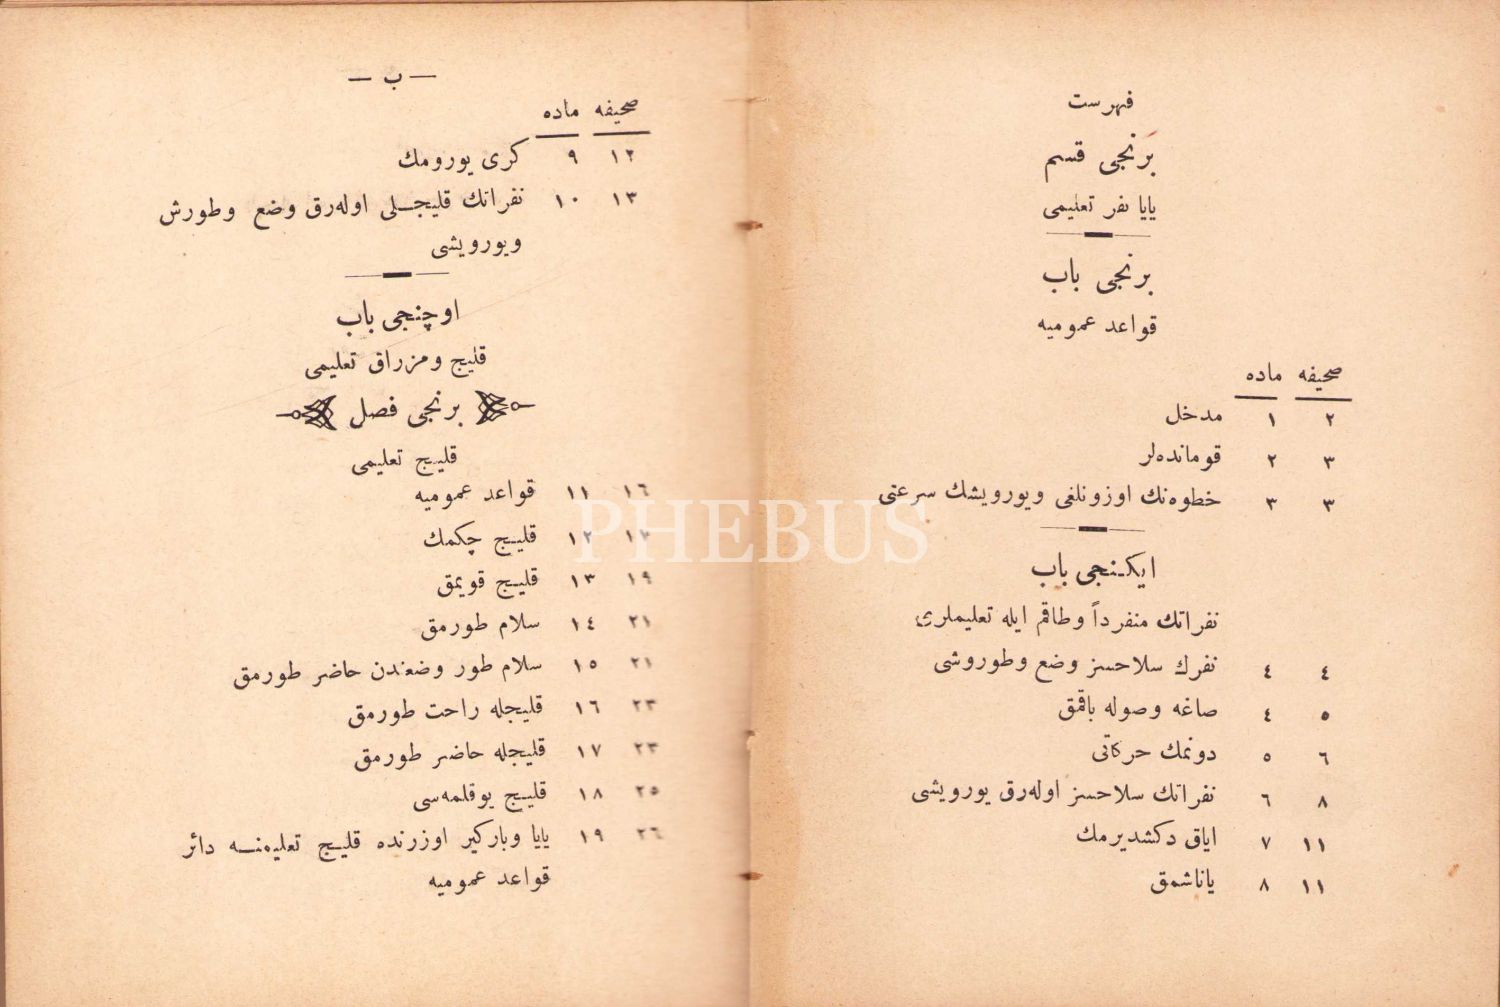 فهرست
برنجی قسم
یایا نفر تعلیمی
برنجی باب
قواعد عمومیه
صحیفه ماده
٢ ١ مدخل
٣ ٢ قوماندەلر
٣ ٣ خطوه‌نك اوزونلغی ویورویشك سرعتی
ایكنجی باب
نفراتك منفرداً وطاقم ایله تعلیملری
٤ ٤ نفرك سلاحسز وضع وطوروشی
٥ ٤ صاغه وصوله باقمق
٦ ٥ دونمك حركاتی
٨ ٦ نفراتك سلاحسز اوله‌رق یورویشی
١١ ٧ ایاق دكشدیرمك
١١ ٨ یاناشمق
— ب —
صحیفه ماده
١٢ ٩ كری یورومك
١٣ ١٠ نفراتك قلیجلی اوله‌رق وضع وطورش
ویورویشی
اوچنجی باب
قلیج ومزراق تعلیمی
برنجی فصل
قلیج تعلیمی
١٦ ١١ قواعد عمومیه
١٢ قلیج چكمك
١٩ ١٣ قلیج قویمق
٢١ ١٤ سلام طورمق
٢١ ١٥ سلام طور وضعندن حاضر طورمق
٢٣ ١٦ قلیجله راحت طورمق
٢٣ ١٧ قلیجله حاضر طورمق
٢٥ ١٨ قلیج یوقلمه‌سی
٢٦ ١٩ یایا وباركیر اوزرنده قلیج تعلیمنه دائر
قواعد عمومیه
PHEBUS